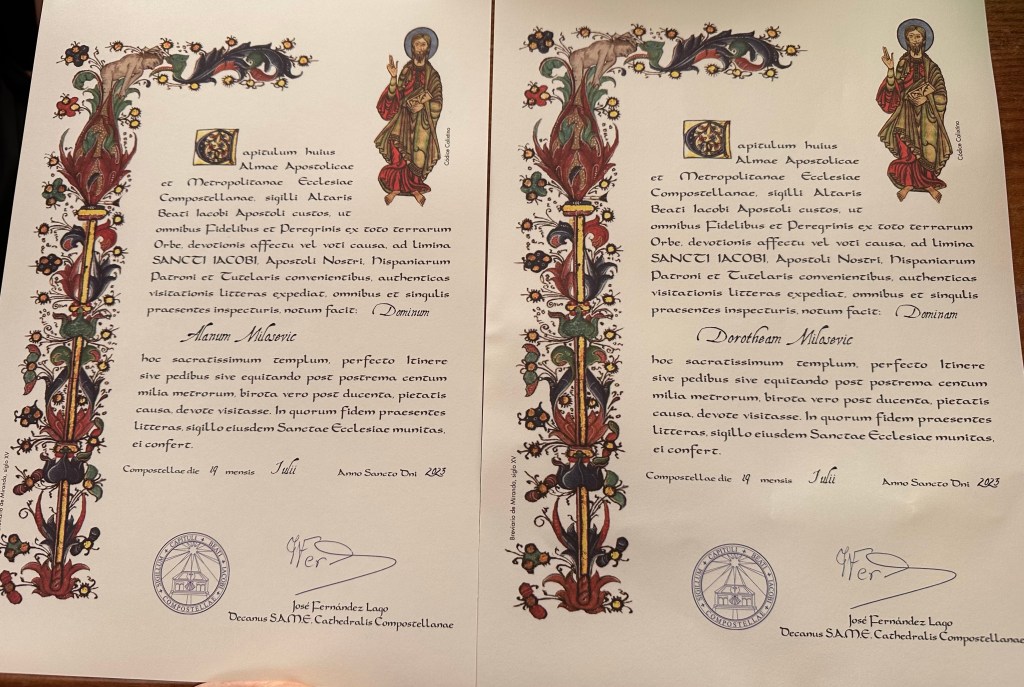 Códice Calixtino
Capitulum huius
Almae Apostolicae
et Metropolitanae Ecclesiae
Compostellanae, sigilli Altaris
Beati Iacobi Apostoli custos, ut
omnibus Fidelibus et Peregrinis ex toto terrarum
Orbe, devotionis affectu vel voti causa, ad limina
SANCTI IACOBI, Apostoli Nostri, Hispaniarum
Patroni et Tutelaris convenientibus, authenticas
visitationis litteras expediat, omnibus et singulis
praesentes inspecturis, notum facit: Dominum
Alanum Milosevic
hoc sacratissimum templum, perfecto Itinere
sive pedibus sive equitando post postrema centum
milia metrorum, birota vero post ducenta, pietatis
causa, devote visitasse. In quorum fidem praesentes
litteras, sigillo eiusdem Sanctae Ecclesiae munitas,
ei confert.
Compostellae die 19 mensis Iulii Anno Sancto Dni 2023
de Miranda, siglo XV
SIGILLUM CAPITULI BEATI IACOBI COMPOSTELLAE
José Fernández Lago
Decanus S.A.M.E. Cathedralis Compostellanae
Códice Calixtino
Capitulum huius
Almae Apostolicae
et Metropolitanae Ecclesiae
Compostellanae, sigilli Altaris
Beati Iacobi Apostoli custos, ut
omnibus Fidelibus et Peregrinis ex toto terrarum
Orbe, devotionis affectu vel voti causa, ad limina
SANCTI IACOBI, Apostoli Nostri, Hispaniarum
Patroni et Tutelaris convenientibus, authenticas
visitationis litteras expediat, omnibus et singulis
praesentes inspecturis, notum facit: Dominam
Dorotheam Milosevic
hoc sacratissimum templum, perfecto Itinere
sive pedibus sive equitando post postrema centum
milia metrorum, birota vero post ducenta, pietatis
causa, devote visitasse. In quorum fidem praesentes
litteras, sigillo eiusdem Sanctae Ecclesiae munitas,
ei confert.
Compostellae die 19 mensis Iulii Anno Sancto Dni 2023
Breviario de Miranda, siglo XV
SIGILLUM CAPITULI BEATI IACOBI COMPOSTELLAE
José Fernández Lago
Decanus S.A.M.E. Cathedralis Compostellanae